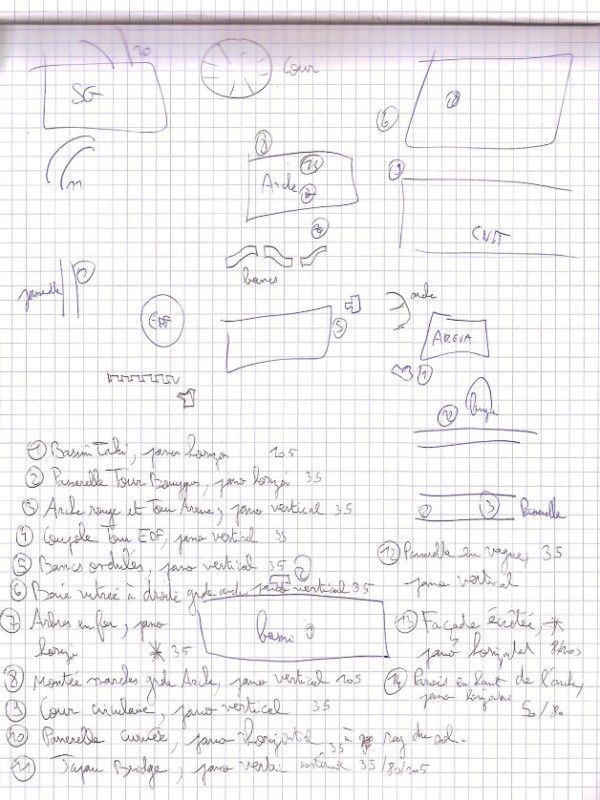 20
SG
Cour
6
8
Arche
9
CNIT
11
bancs
passerelle
EDF
5
arche
AREVA
1
12
3
Passerelle
① Bassin Taki, pano horizon 105
② Passerelle Tour Bouygues, pano horizon 35
③ Arche rouge et Tour Areva, pano vertical 35
④ Coupole Tour EDF, pano vertical 35
⑤ Bancs ondulés, pano vertical 35
⑥ Baie vitrée à droite grde arche, pano vertical 35
⑦ Arbres en fer, pano
horizon 35
bassin
⑧ Montée marches grde Arche, pano vertical 105
⑨ Cour circulaire, pano vertical 35
⑩ Passerelle curvée, pano horizontal 35 à ras du sol.
⑪ Japan Bridge, pano vertical 35/80/105
⑫ Passerelle en vague, 35
pano vertical
⑬ Façade
pano horizontal
⑭ Parois en haut de l'arche,
pano horizontal
50/80